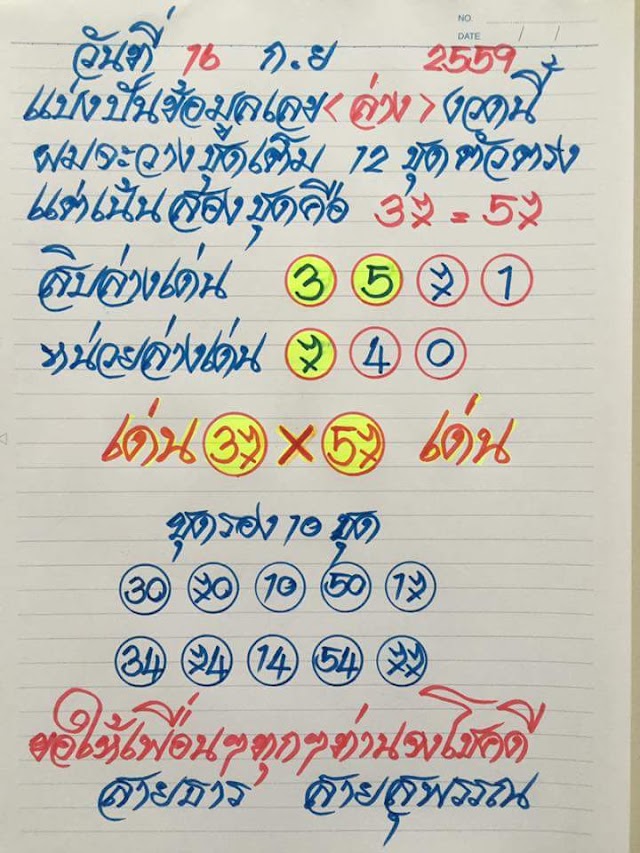 NO.
DATE / /
วันที่ 16 ก.ย 2559
แบ่งปันข้อมูลเลข <ล่าง> งวดนี้
ผมจะวางชุดเต็ม 12 ชุดตัวตรง
แต่เน้นสองชุดคือ 37 = 57
สิบล่างเด่น 3 5 7 1
หน่วยล่างเด่น 7 4 0
เด่น 37 × 57 เด่น
ชุดรอง 10 ชุด
30 70 10 50 17
34 74 14 54 77
ขอให้เพื่อนๆทุกๆท่านจงโชคดี
สายธาร สายสุพรรณ